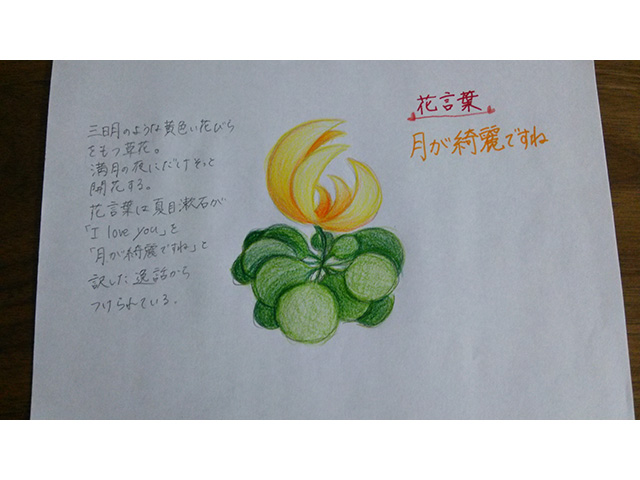 三日月のような黄色い花びら
をもつ草花。
満月の夜にだけそっと
開花する。
花言葉は夏目漱石が
「I love you」を
「月が綺麗ですね」と
訳した逸話から
つけられている.
花言葉
月が綺麗ですね